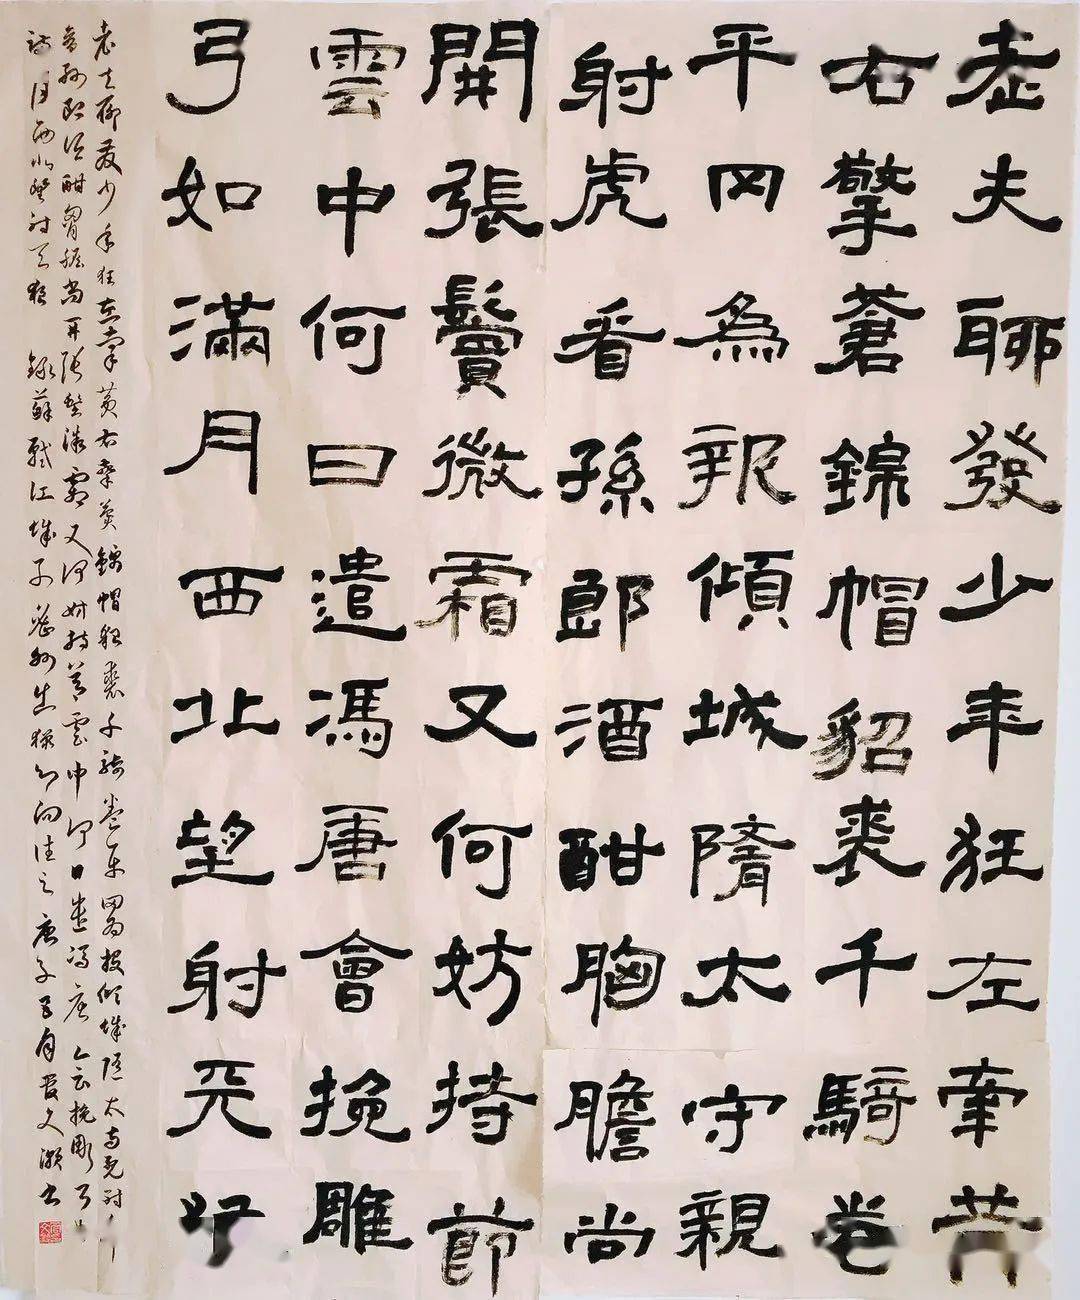 老夫聊發少年狂左牽黃
右擎蒼錦帽貂裘千騎卷
平冈為報傾城隋太守親
射虎看孫郎酒酣胸膽尚
開張鬢微霜又何妨持節
雲中何日遣馮唐會挽雕
弓如滿月西北望射天
老夫聊發少年狂左牽黃右擎蒼錦帽貂裘千騎卷平岡為報傾城隨太守親射
看孫郎酒酣胸膽尚開張鬢微霜又何妨持節雲中何日遣馮唐會挽雕弓
滿月西北望射天狼 錄蘇軾江城子密州出獵 庚子 月 書